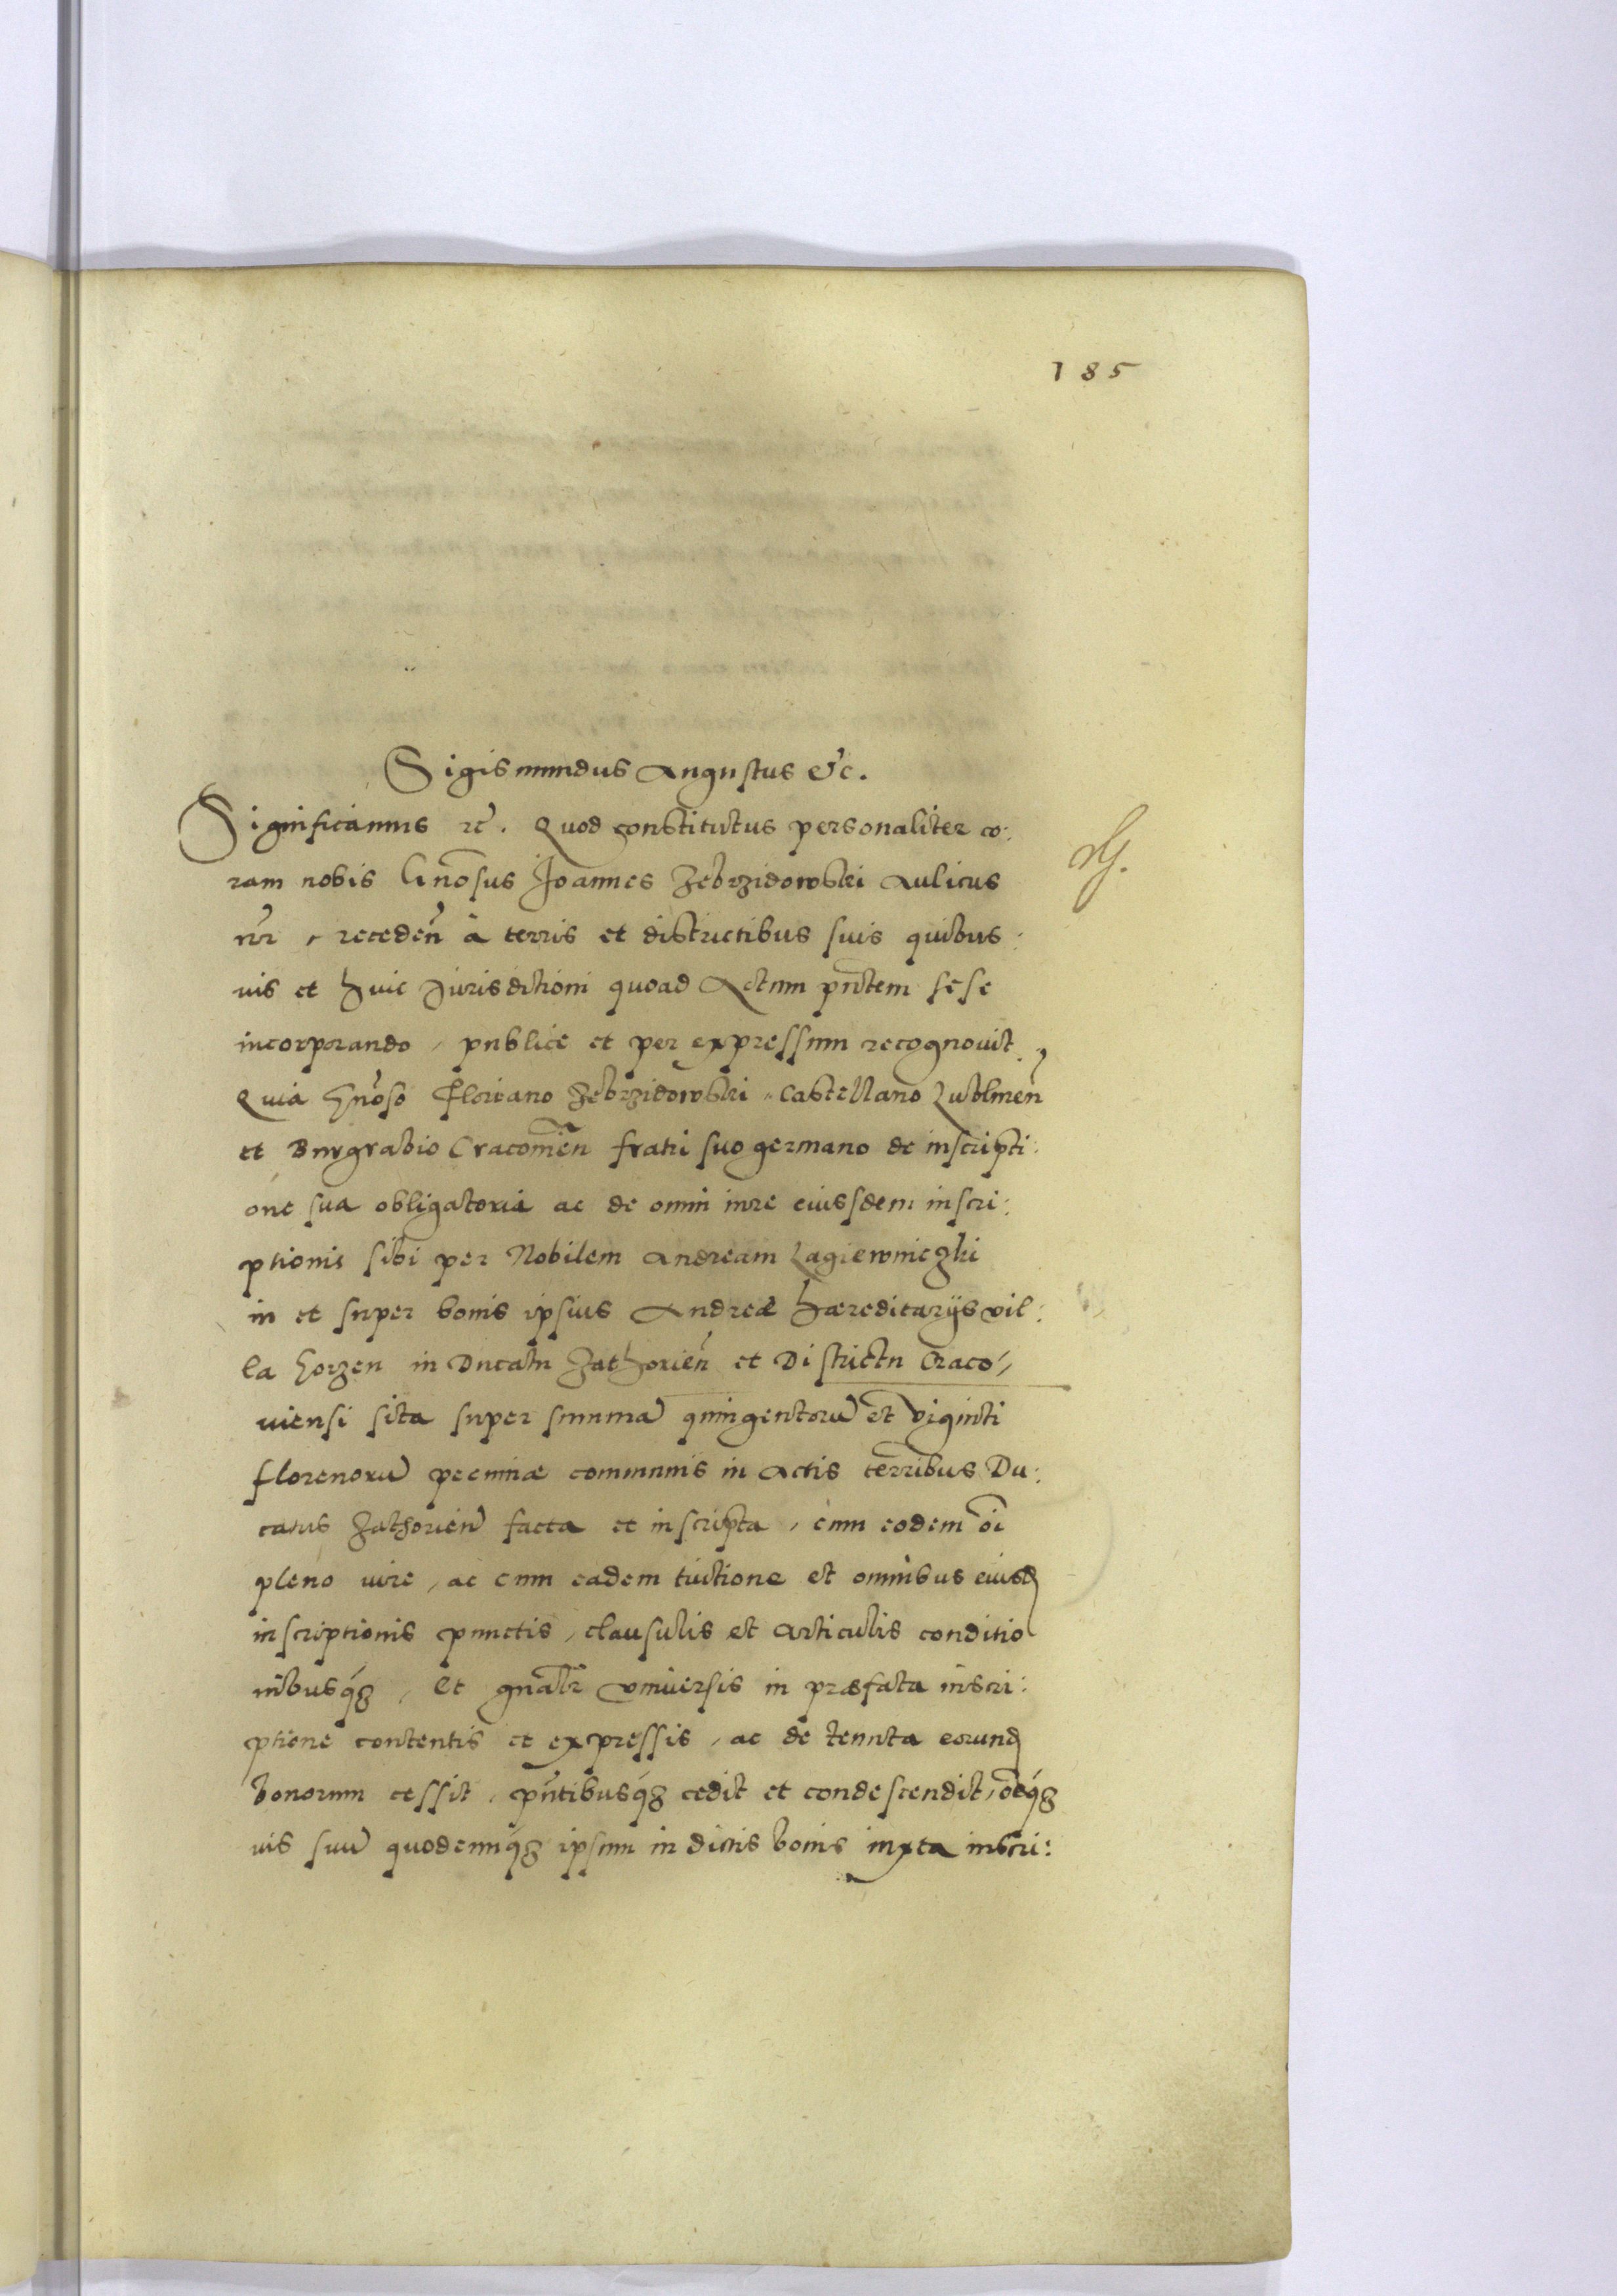 185
Sigismundus Augustus &c.
Significamus rc̃. Quod constitutus personaliter co:
ram nobis Gñosus Joannes Zebrzidowski Aulicus
nr̃, receden̄ à terris et districtibus suis quibus:
uis et huic Jurisditioni quoad Actum pn̄tem sese
incorporando, publice et per expressum recognouit.
Quia Gn̄oso Floriano Zebrzidowski Castellano Lublinen̄
et Burgrabio Cracouien̄ fratri suo germano de inscripti:
one sua obligatoria ac de omni iure eiussdem inscri:
ptionis sibi per Nobilem Andream Lagiewniczki
in et super bonis ipsius Andreæ hæreditarijs vil:
la Gorzen in Ducatu Zathorien̄ et Districtu Craco,
uiensi sita super summa᷉ quingentoru᷉ et viginti
florenoru᷉ pecuniæ communis in Actis terrībus Du:
catus Zathorien̄ facta et inscripta, cùm eodem oı̄
pleno iure, ac cum eadem tuitione et omnibus eiusd
inscriptionis punctis, clausulis et articulis conditio
nibusq́ꝫ, Et gnãlr vniuersis in præfata inscri:
ptione contentis et expressis, ac de tenuta eorund
bonorum cessit, pn̄tibusq́ꝫ cedit et condescendit, oēq́ꝫ
ius suu᷉ quodcunq́ꝫ ipsum in dictis bonis iuxta inscri: